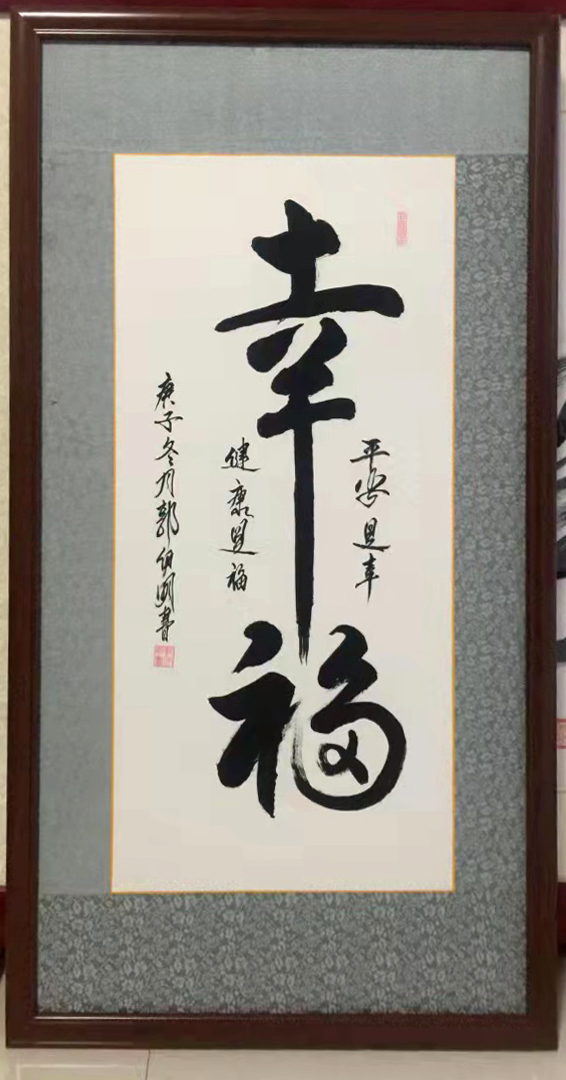 幸福
平安是幸
健康是福
庚子冬月郭伯国書